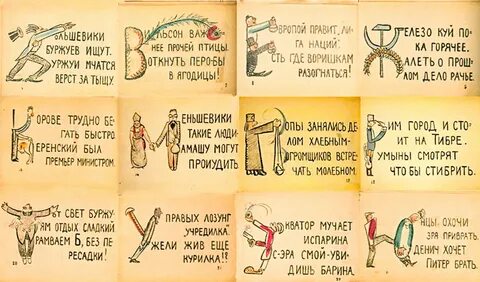 БОЛЬШЕВИКИ
БУРЖУЕВ ИЩУТ.
УРЖУИ МЧАТСЯ
ВЕРСТ ЗА ТЫЩУ.
ВИЛЬСОН ВАЖ
НЕЕ ПРОЧЕЙ ПТИЦЫ.
ВОТКНУТЬ ПЕРО БЫ
В ЯГОДИЦЫ!
ЕВРОПОЙ ПРАВИТ „ЛИ
ГА НАЦИЙ".
СТЬ ГДЕ ВОРИШКАМ
РАЗОГНАТЬСЯ!
ЖЕЛЕЗО КУЙ ПО
КА ГОРЯЧЕЕ.
АЛЕТЬ О ПРОШ
ЛОМ ДЕЛО РАЧЬЕ.
КОРОВЕ ТРУДНО БЕ
ГАТЬ БЫСТРО.
ЕРЕНСКИЙ БЫЛ
ПРЕМЬЕР МИНИСТРОМ.
МЕНЬШЕВИКИ
ТАКИЕ ЛЮДИ
АМАШУ МОГУТ
ПРОИУДИТЬ
ПОПЫ ЗАНЯЛИСЬ ДЕ
ЛОМ ХЛЕБНЫМ
ОГРОМЩИКОВ ВСТРЕ
ЧАТЬ МОЛЕБНОМ.
РИМ ГОРОД И СТО
ИТ НА ТИБРЕ.
УМЫНЫ СМОТРЯТ
ЧТО БЫ СТИБРИТЬ.
ТОТ СВЕТ БУРЖУ
ЯМ ОТДЫХ СЛАДКИЙ
РАМВАЕМ Б, БЕЗ ПЕ
РЕСАДКИ!
У ПРАВЫХ ЛОЗУНГ
„УЧРЕДИЛКА".
ЖЕЛИ ЖИВ ЕЩЕ
КУРИЛКА!?
ЭКВАТОР МУЧАЕТ
ИСПАРИНА
С-ЭРА СМОЙ-УВИ
ДИШЬ БАРИНА.
ЯПЦЫ. ОХОЧИ
ЗРЯ ПРИВРАТЬ.
ДЕНИЧ ХОЧЕТ
ПИТЕР БРАТЬ.